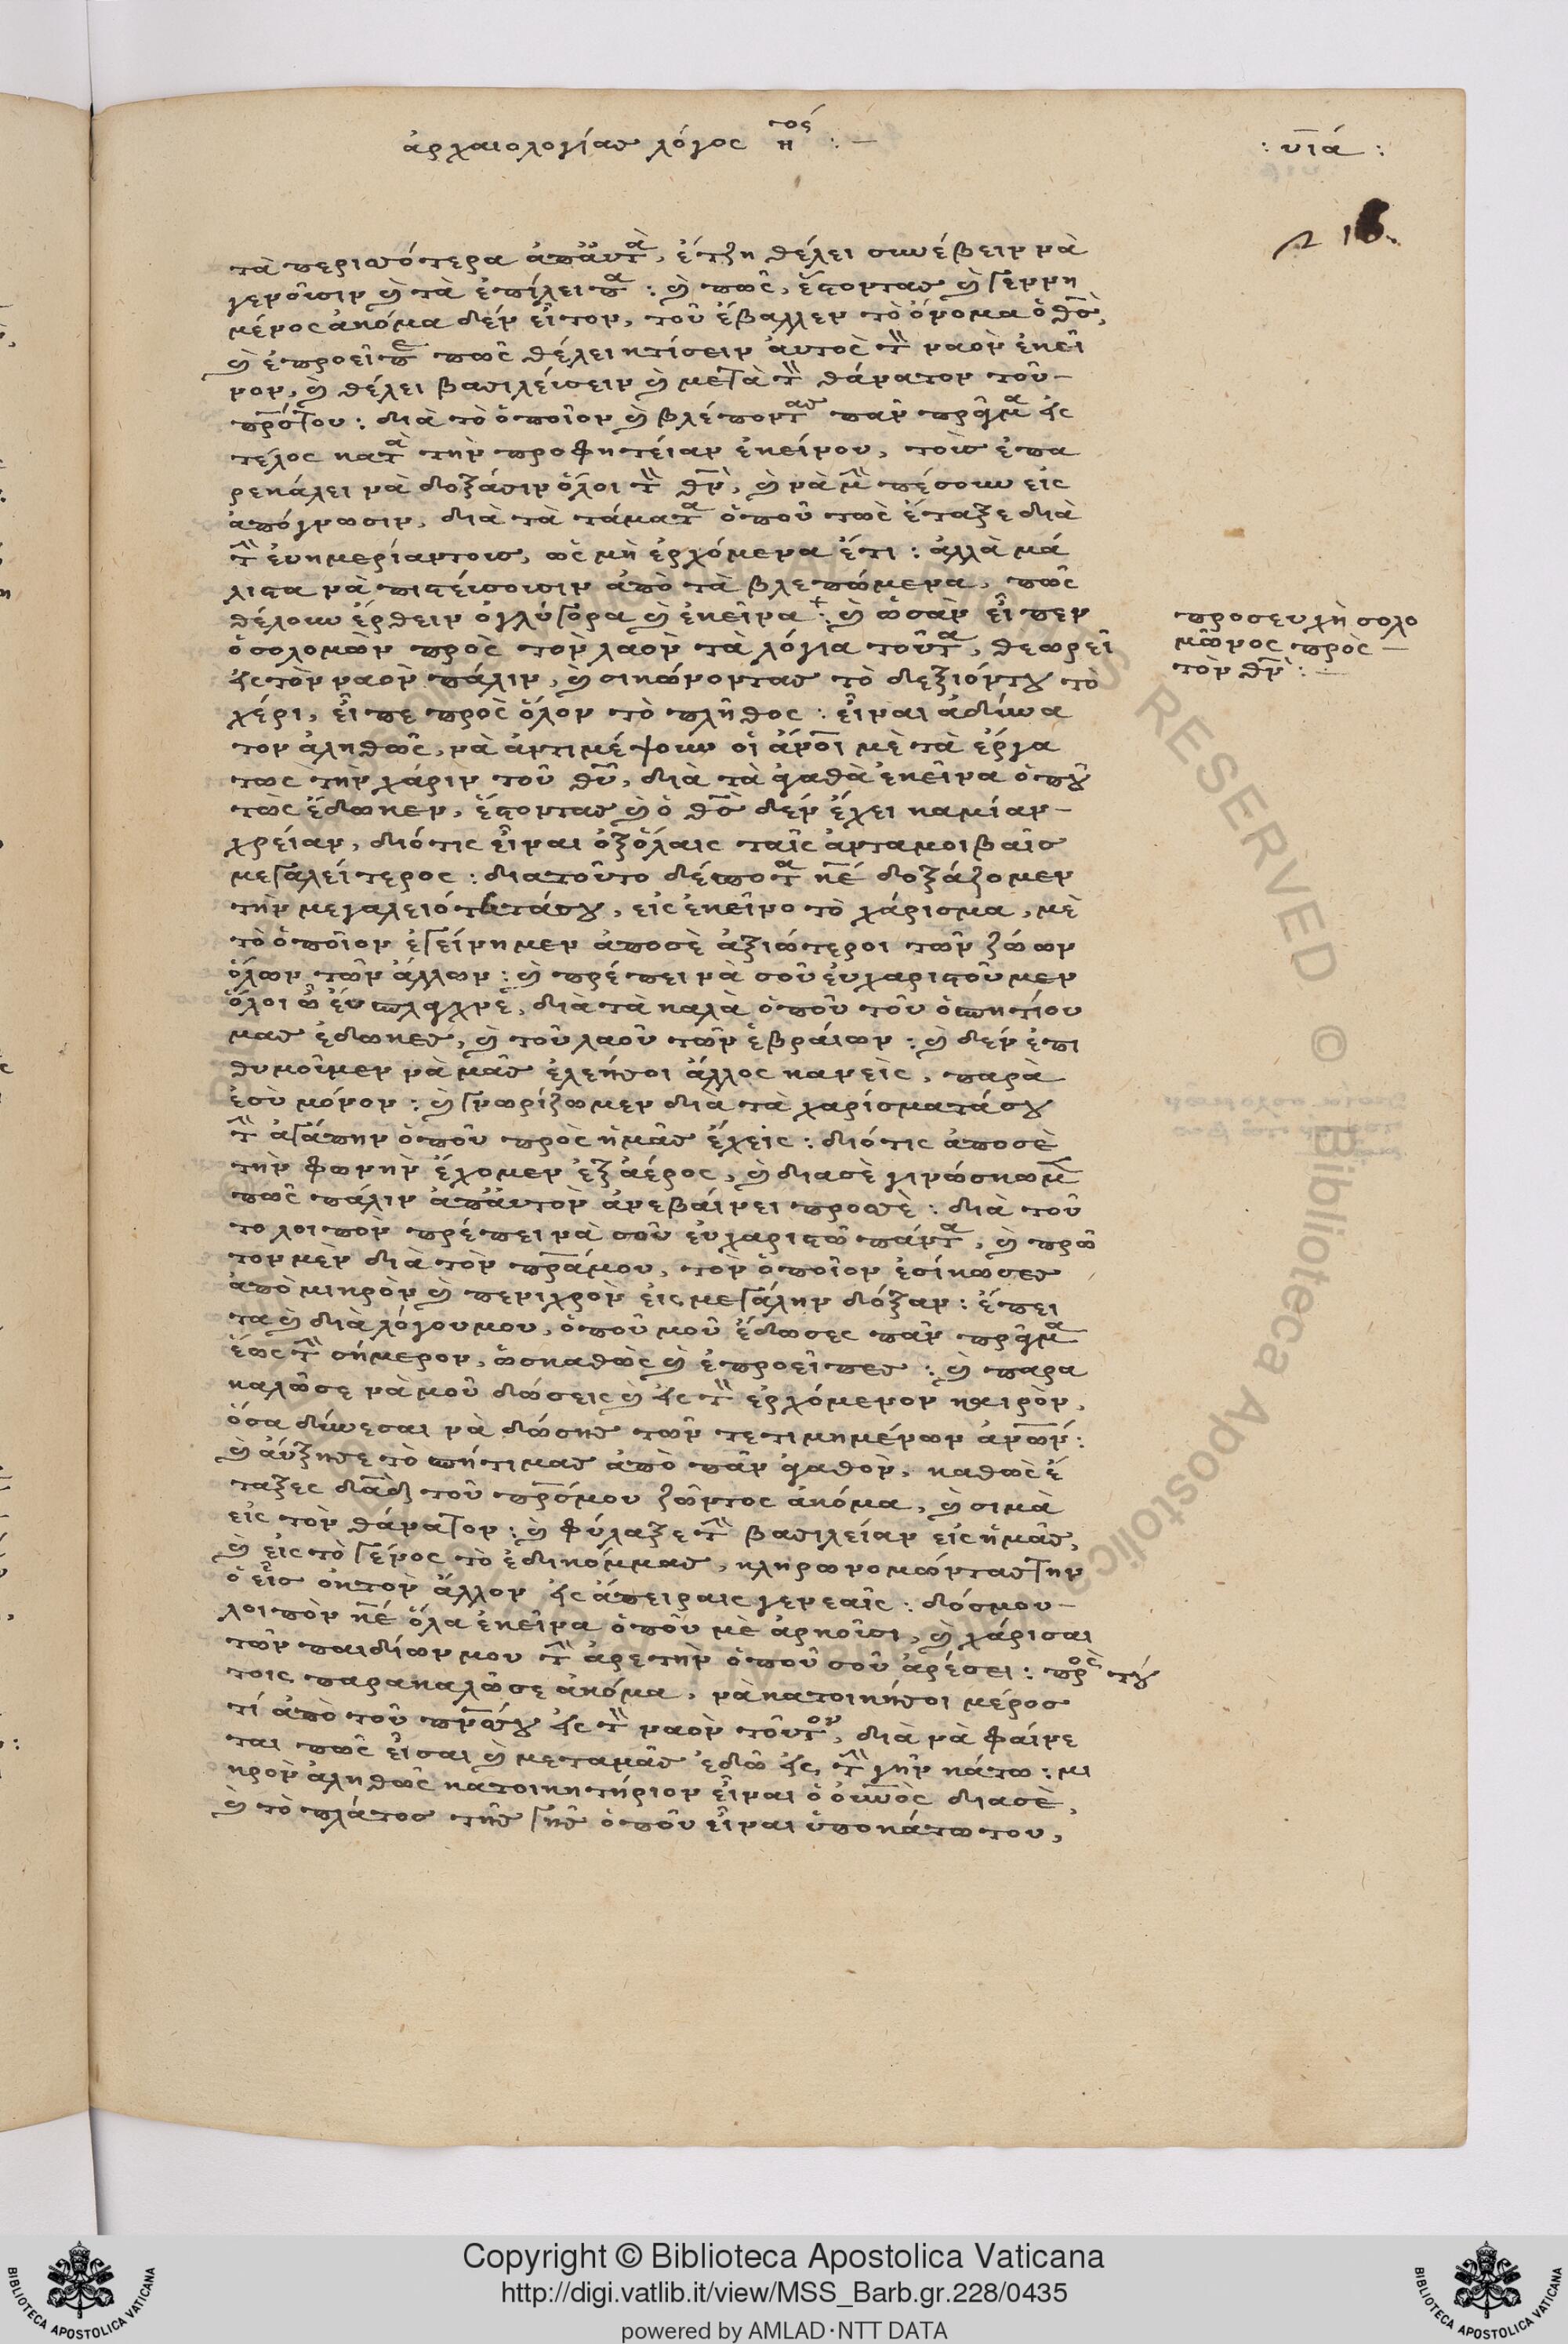 ἀρχαιολογίας λόγος ητος : —
: υιά :
216.
τὰ περισσότερα ἀπ' αὐτὰ, ἔτζη θέλει συνέβειν νὰ
γενοῦσιν καὶ τὰ ἐπίλειπα : καὶ πῶς, ἔστοντας καὶ γεννη
μένος ἀκόμα δὲν εἶτον, τοῦ ἔβαλλεν τὸ ὄνομα ὁ θσ,
καὶ ἐπροεῖπε πῶς θέλει κτίσειν αὐτὸς τὸν ναὸν ἐκεῖ
νον, καὶ θέλει βασιλεύσειν καὶ μετὰ τὸν θάνατον τοῦ —
πρστου : διὰ τὸ ὁποῖον καὶ βλέποντας πᾶν πρᾶγμα εἰς
τέλος κατὰ τὴν προφητείαν ἐκείνου, τοὺς ἐπα
ρεκάλει νὰ δοξάσιν ὅλοι τὸν θν, καὶ νὰ μὴν πέσουν εἰς
ἀπόγνωσιν, διὰ τὰ τάματα ὁποῦ τὼς ἔταξε διὰ
τὴν εὐημερίαντους, ὡς μὴ ἐρχόμενα ἔτι : ἀλλὰ μά
λιστα νὰ πιστεύσουσιν ἀπὸ τὰ βλεπώμενα, πῶς
θέλουν ἔρθειν ὀγλύγορα καὶ ἐκεῖνα + : καὶ ὡσὰν εἶπεν
ὁ σολομὼν πρὸς τὸν λαὸν τὰ λόγια τοῦτα, θεωρεῖ
εἰς τὸν ναὸν πάλιν, καὶ σικώνοντας τὸ δεξιόντου τὸ
χέρι, εἶπε πρὸς ὅλον τὸ πλῆθος : εἶναι ἀδύνα
τον ἀληθῶς, νὰ ἀντιμέψουν οἱ ἄνοι μὲ τὰ ἔργα
τως τὴν χάριν τοῦ θυ, διὰ τὰ ἀγαθὰ ἐκεῖνα ὁποῦ
τὼς ἔδωκεν, ἔστοντας καὶ ὁ θσ δὲν ἔχει καμίαν —
χρείαν, διότις εἶναι ὀξ' ὅλαις ταῖς ἀνταμοιβαῖς
μεγαλείτερος : διατοῦτο δέσποτα κε δοξάζομεν
τὴν μεγαλειότητάσου, εἰς ἐκεῖνο τὸ χάρισμα, μὲ
τὸ ὁποῖον ἐγείνημεν ἀποσὲ ἀξιώτεροι τῶν ζώων
ὅλων τῶν ἄλλων : καὶ πρέπει νὰ σοῦ εὐχαριστοῦμεν
ὅλοι διὰ τὰ καλὰ ὁποῦ τοῦ ὁσπητίου
μας ἔδωκες, καὶ τοῦ λαοῦ τῶν ἑβραίων : καὶ δὲν ἐπι
θυμοῦμεν νὰ μᾶς ἐλεήσοι ἄλλος κανεὶς, παρὰ
ἐσὺ μόνον : καὶ γνωρίζωμεν διὰ τὰ χαρίσματάσου
τὴν ἀγάπην ὁποῦ πρὸς ἡμᾶς ἔχεις : διότις ἀποσὲ
τὴν φωνὴν ἔχομεν ἐξ ἀέρος, καὶ διασὲ γινώσκωμεν
πῶς πάλιν ἀπ' αὐτὸν ἀνεβαίνει προσσὲ : διὰ τοῦ
το λοιπὸν πρέπει νὰ σοῦ εὐχαριστῶ πάντα, καὶ πρῶ
τον μὲν διὰ τὸν πραμου, τὸν ὁποῖον ἐσίκωσες
ἀπὸ μικρὸν καὶ πενιχρὸν εἰς μεγάλην δόξαν : ἔπει
τα καὶ διὰ λόγουμου, ὁποῦ μοῦ ἔδωσες πᾶν πρᾶγμα
ἕως τὴν σήμερον, ὡσκαθὼς καὶ ἐπροεῖπες : καὶ παρα
καλῶσε νὰ μοῦ δώσεις καὶ εἰς τὸν ἐρχόμενον καιρὸν,
ὅσα δύνεσαι νὰ δώσης τῶν τετιμημένων ἀνων :
καὶ αὔξησε τὸ σπήτιμας ἀπὸ πᾶν ἀγαθὸν, καθὼς ἔ
ταξες δαδ τοῦ πρσμου ζῶντος ἀκόμα, καὶ σιμὰ
εἰς τὸν θάνατον : καὶ φύλαξε τὴν βασιλείαν εἰς ἡμᾶς,
καὶ εἰς τὸ γένος τὸ ἐδικόμμας, κληρωνομῶντας την
ὁ εἷς ὀκτὸν ἄλλον εἰς ἄπειραις γενεαῖς : δόσμου —
λοιπὸν κε ὅλα ἐκεῖνα ὁποῦ μὲ ἀρκοῦσι, καὶ χάρισαι
τῶν παιδίων μου τὴν ἀρετὴν ὁποῦ σοῦ ἀρέσει : πρὸς τού
τοις παρακαλῶσε ἀκόμα, νὰ κατοικήσοι μέρος
τί ἀπὸ τοῦ πνσσου εἰς τὸν ναὸν τοῦτον, διὰ νὰ φαίνε
ται πῶς εἶσαι καὶ μεταμᾶς ἐδῶ εἰς τὴν γῆν κάτω : μι
κρὸν ἀληθῶς κατοικητήριον εἶναι ὁ οὐνὸς διασὲ,
καὶ τὸ πλάτος τῆς γῆς ὁποῦ εἶναι ὑποκάτω του,
προσευχὴ σολο
μῶνος πρὸς —
τὸν θν : —
Copyright © Biblioteca Apostolica Vaticana
http://digi.vatlib.it/view/MSS_Barb.gr.228/0435
powered by AMLAD·NTT DATA
BIBLIOTECA APOSTOLICA VATICANA
BIBLIOTECA APOSTOLICA VATICANA